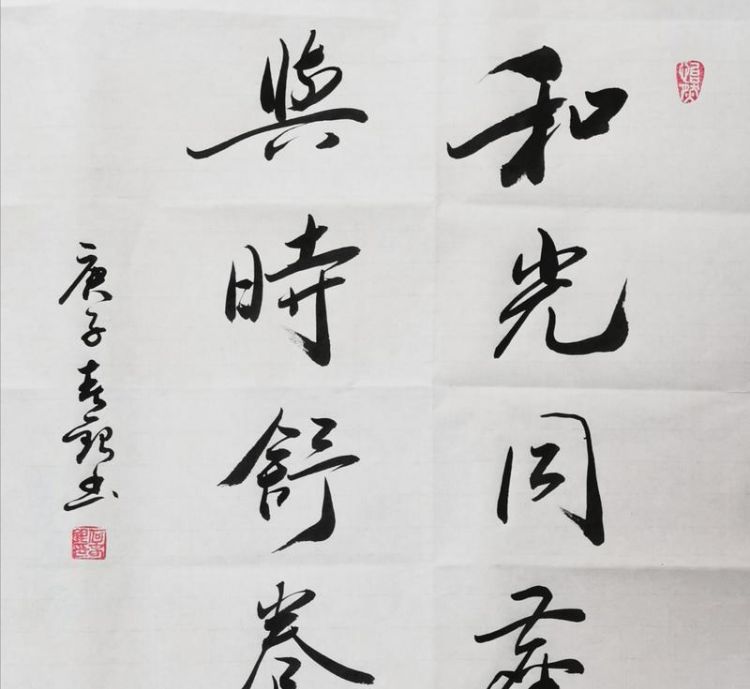 和光同
與時舒卷
庚子春 書